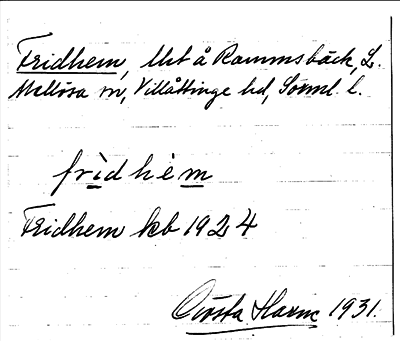 Fridhem, Uht å Rammsbäck, L.
Mellösa sn, Villåttinge hd, Sörml. l.
frìdhèm
Fridhem kb 1924
Gösta Harm 1931.